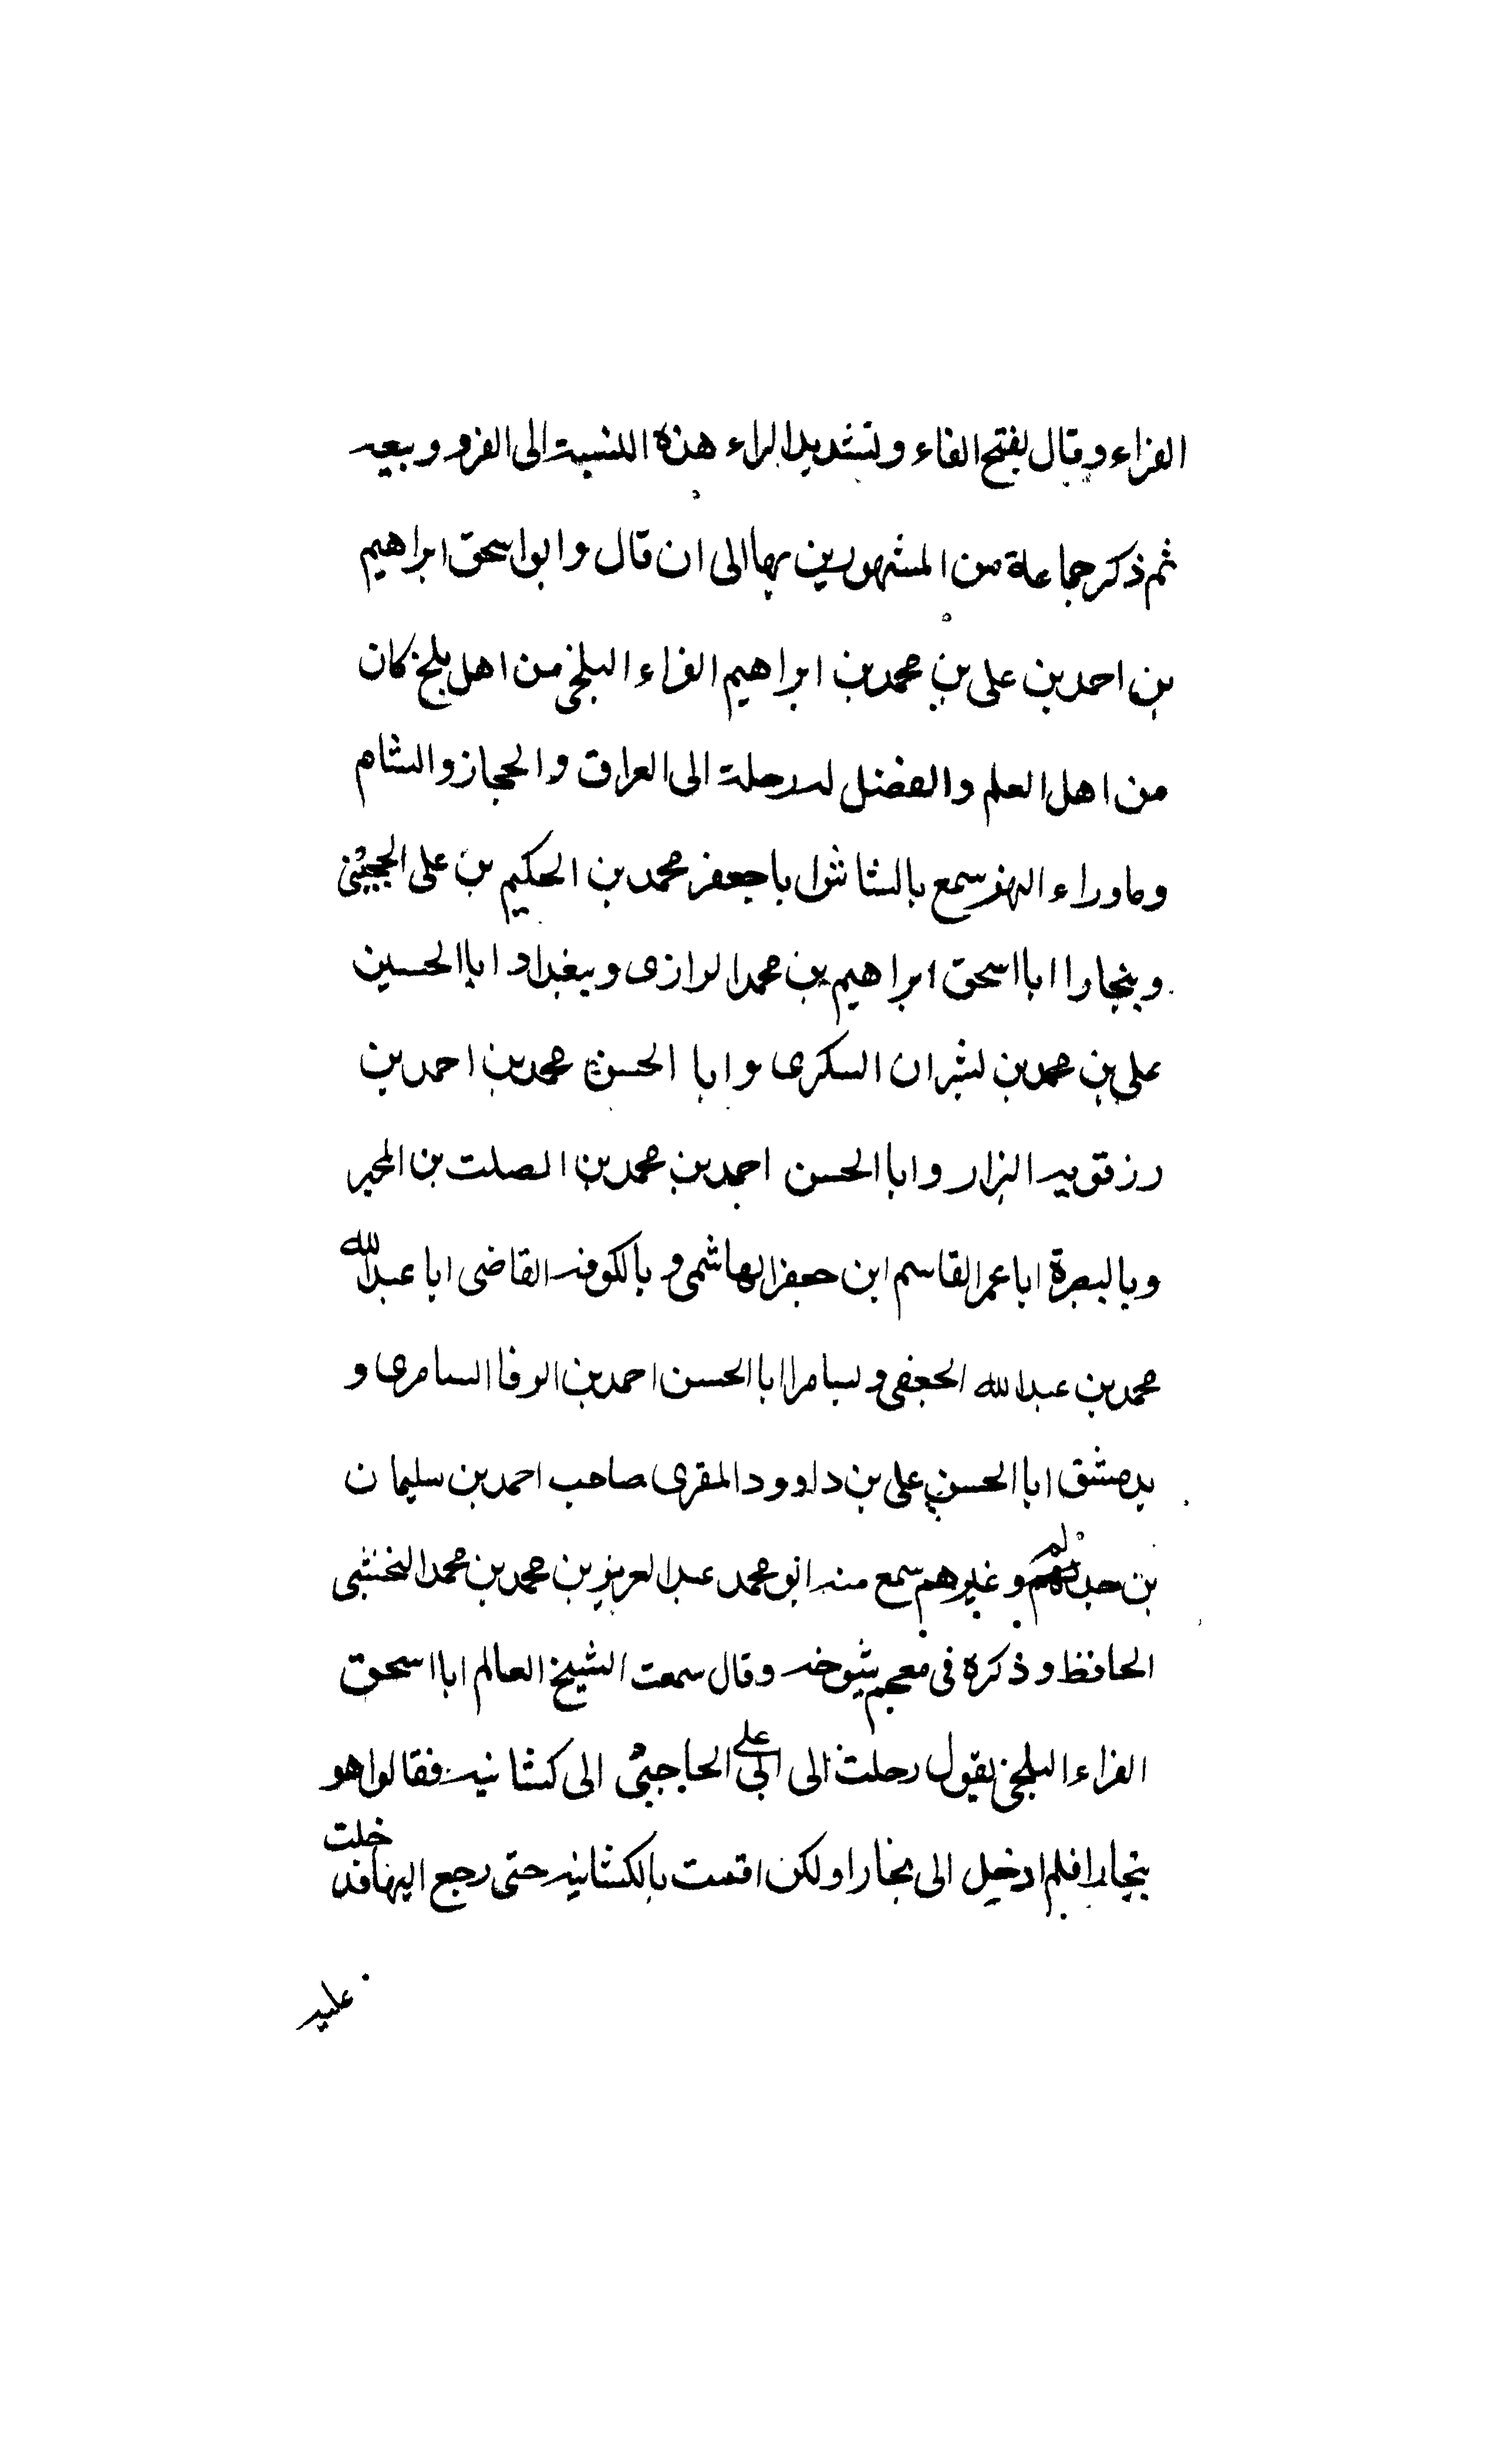 الفراء وقال بفتح الفاء وتشديد الراء هذه النسبة الى الفرو وبيعه
ثم ذكر جماعة من المشهورين بها الى ان قال وابو اسحق ابراهيم
بن احمد بن على بن محمد بن ابراهيم الفراء البلخى من اهل بلخ كان
من اهل العلم والفضل له رحلة الى العراق والحجاز والشام
وماوراء النهر سمع بالشاش ابا جعفر محمد بن الحكيم بن على
وبنجارا ابا اسحق ابراهيم بن محمد الرازى وببغداد ابا الحسين
على بن محمد بن بشران السكرى و ابا الحسن محمد بن احمد بن
رزقويه البزار و ابا الحسن احمد بن محمد بن الصلت بن المجبر
وبالبصرة ابا عمر القاسم ابن جعفر الهاشمى و بالكوفه القاضى ابا عبدالله
محمد بن عبدالله الجعفى وبسامرا ابا الحسن احمد بن الرفا السامرى و
بدمشق ابا الحسن على بن داوود المقرى صاحب احمد بن سليمان
بن حذلم وغيرهم سمع منه ابو محمد عبد العزيز بن محمد بن محمد النخشبى
الحافظ و ذكره فى معجم شيوخه وقال سمعت الشيخ العالم ابا اسحق
الفراء البلخى يقول رحلت الى ابى على الحاجبى الى كشانيه فقالوا هو
بنجارا فلم ادخل الى بخارا ولكن اقمت بالكشانيه حتى رجع اليها فدخلت
عليه